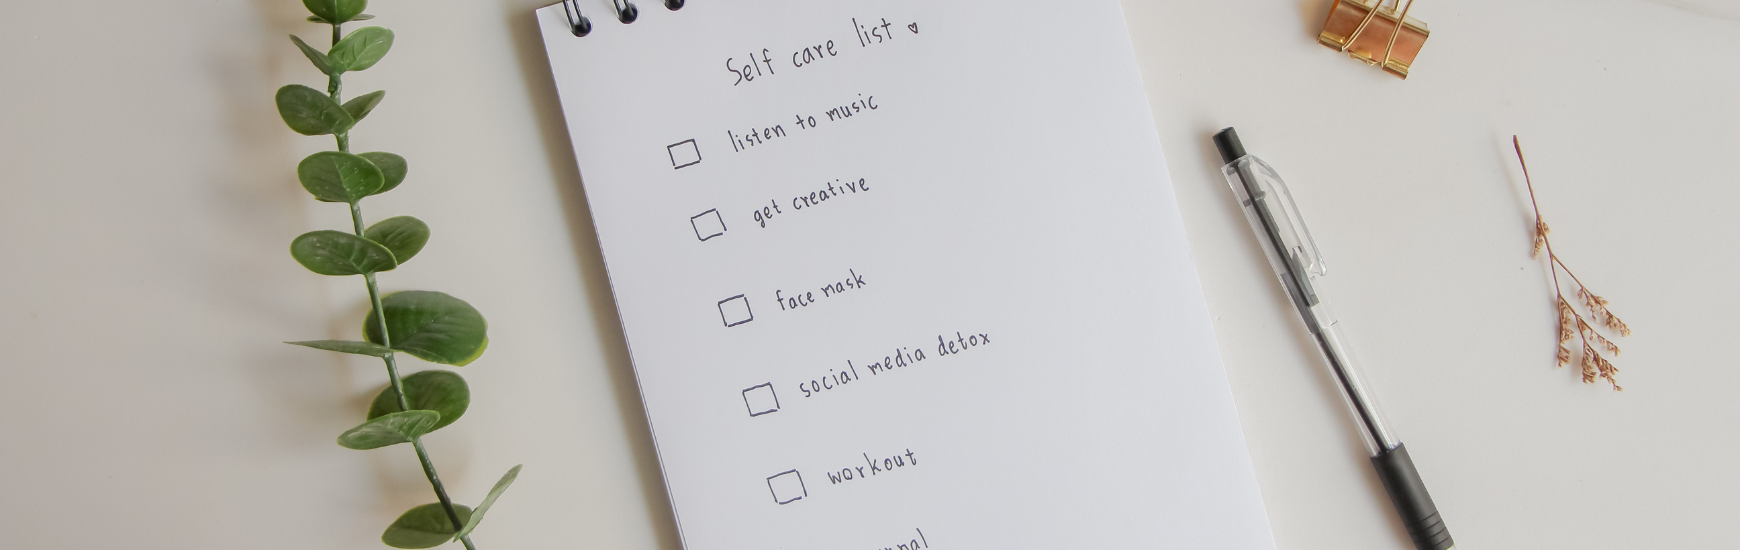 Self care list ♡
listen to music
get creative
face mask
social media detox
workout